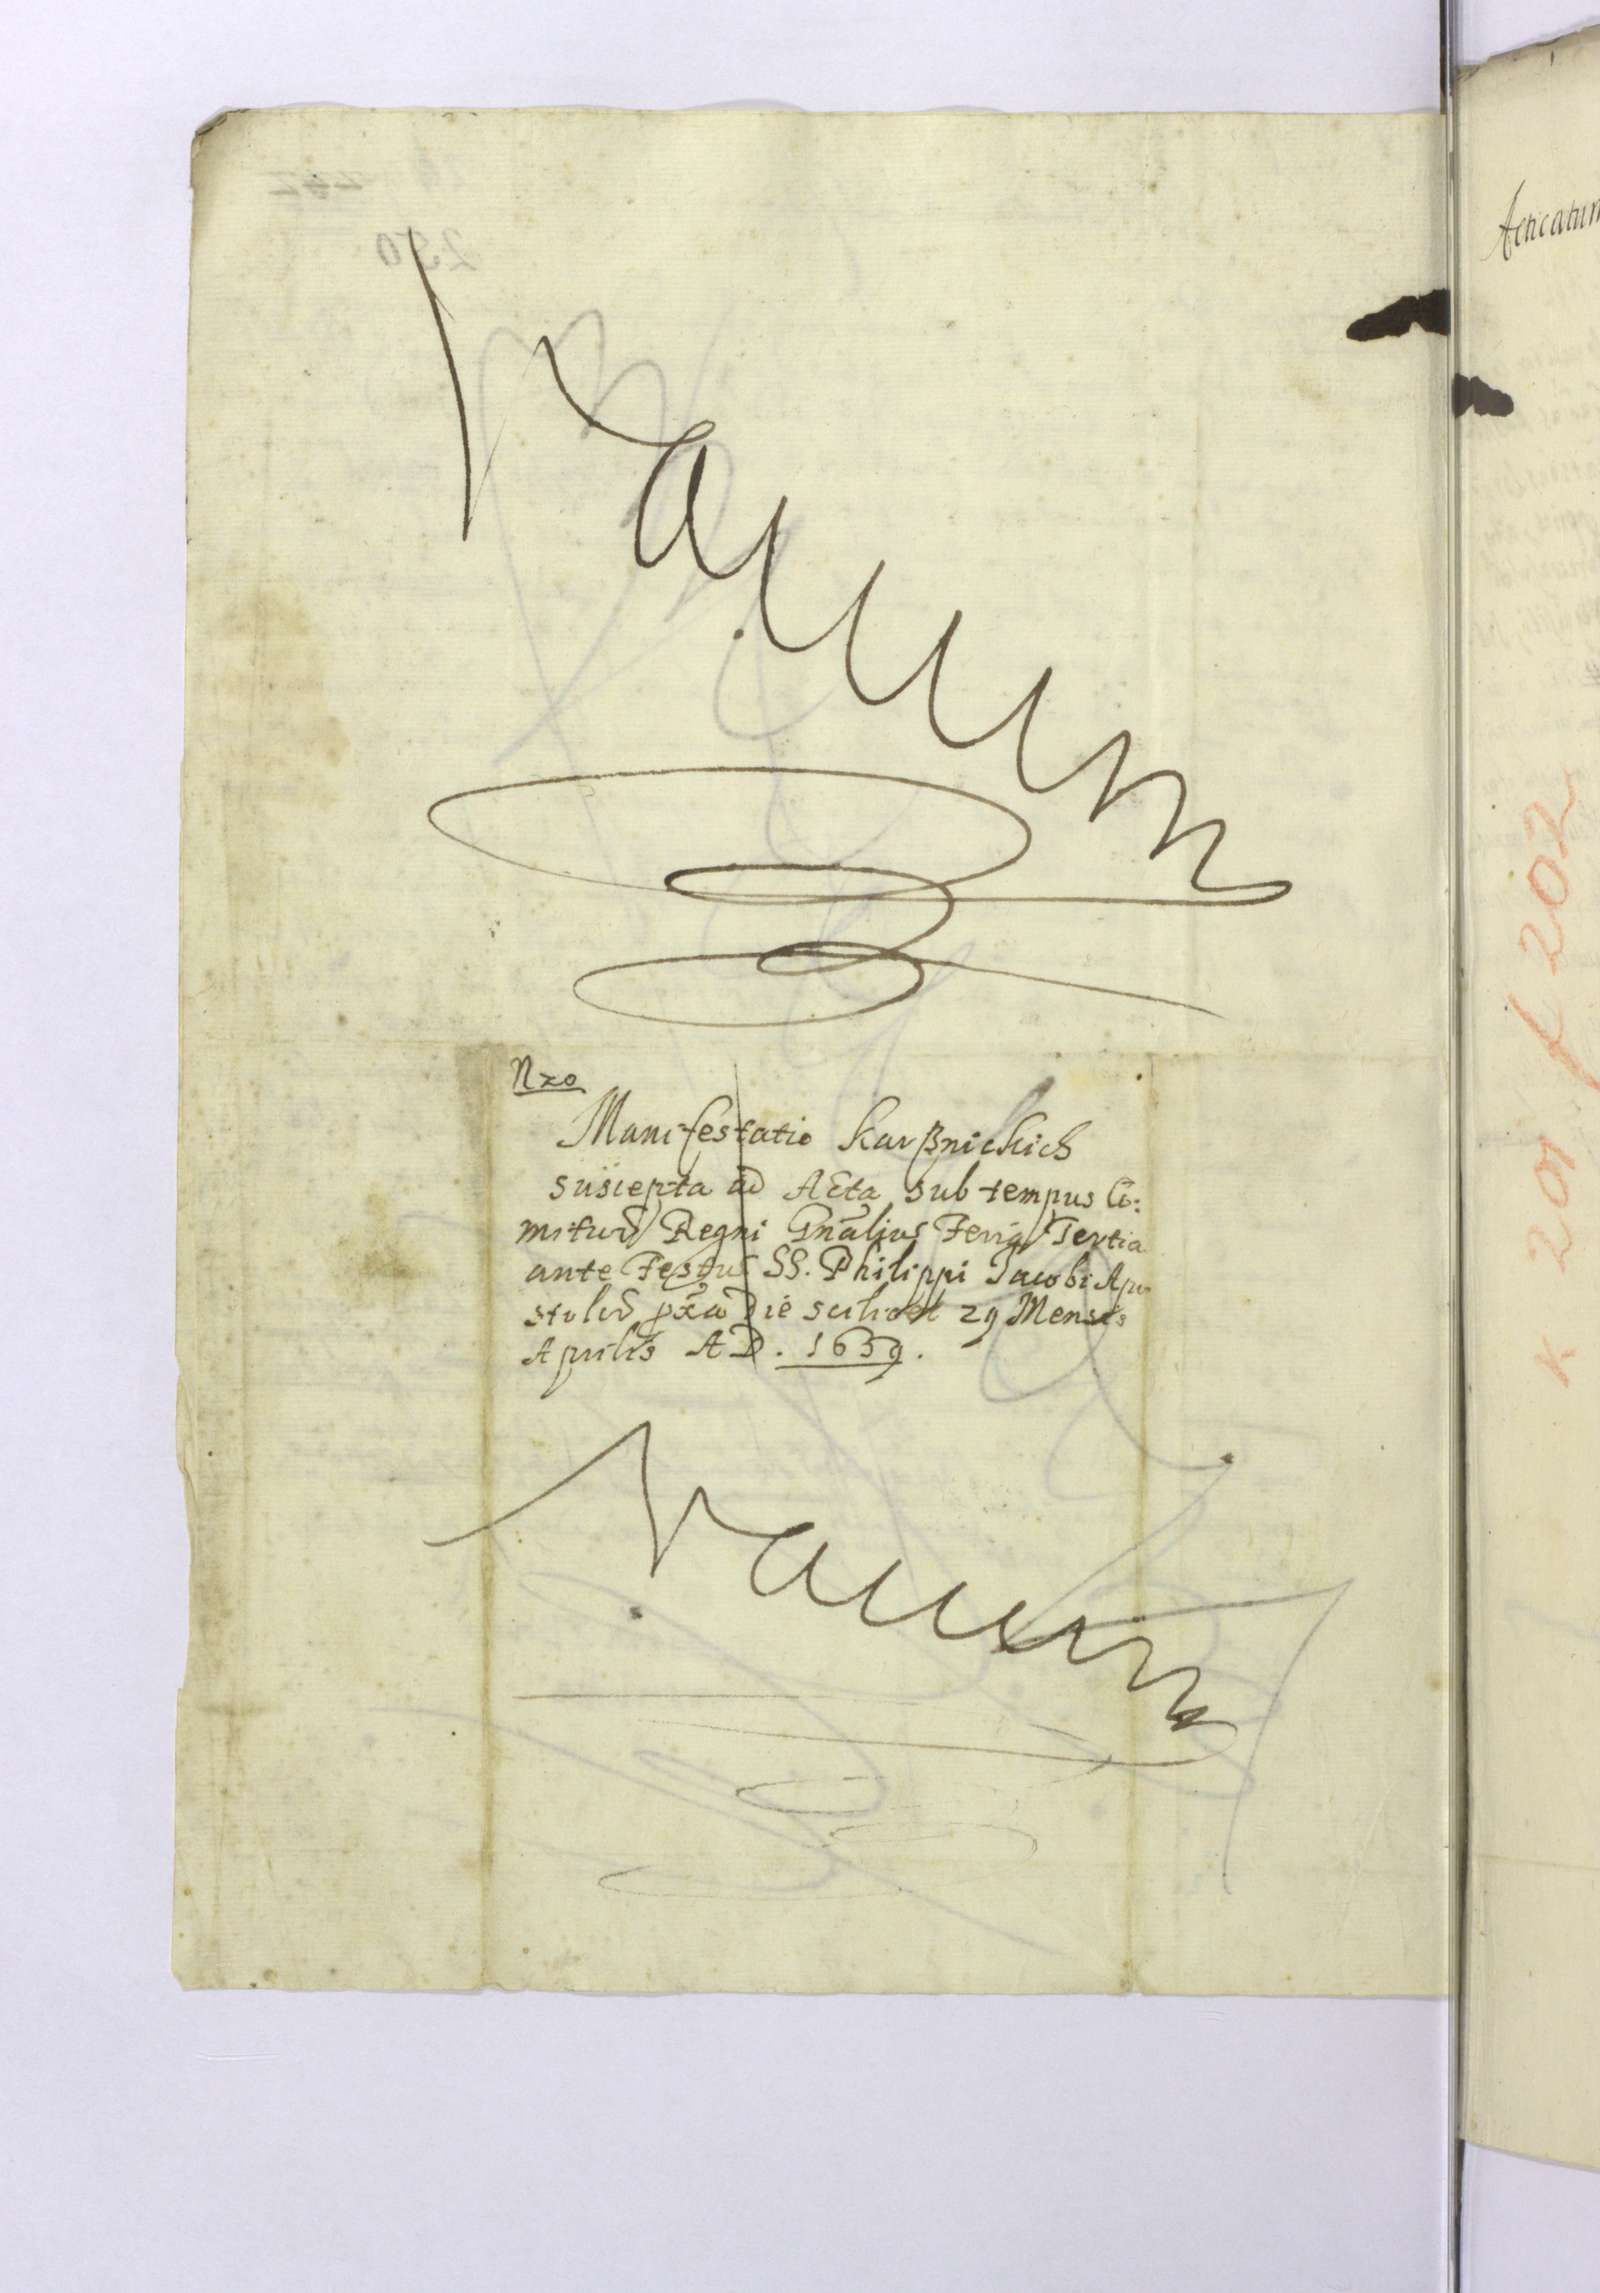 Vacuum
Nro
Manifestatio Karßnickich
suscepta ad Acta sub tempus Co:
mitiorũ Regni Gñaliũ Feria Tertia
ante Festũ SS. Philippi Jacobi Apo
stolorũ pxa Die scilicet 29 Mensis
Aprilis AD. 1659.
Vacuum
Acticatum
K 201 f 202